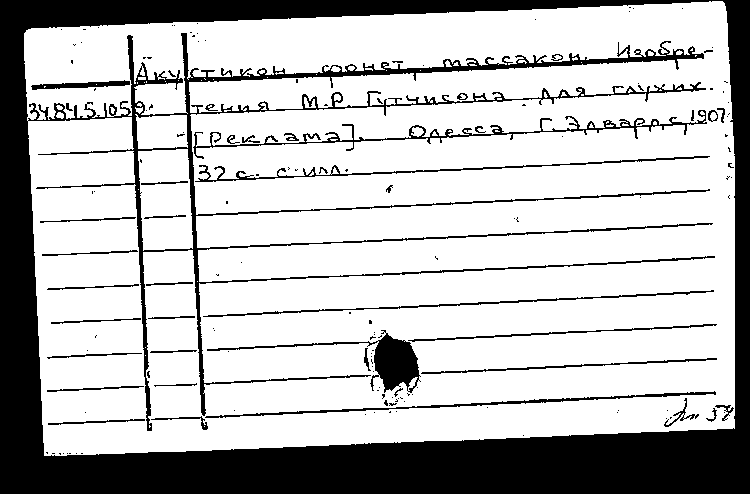 Акустикон, фонет, массакон. Изобре-
34.84.5.1059. тения М.Р. Гутчисона для глухих.
[Реклама]. Одесса, Г. Эдвардс, 1907
32 с. с илл.